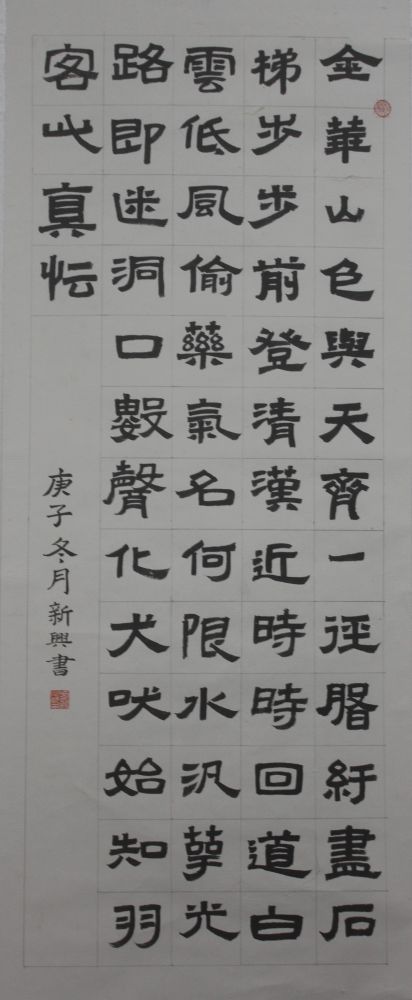 金華山色與天齊一徑紆盡石
梯步步前登清漢近時時回道白
雲低風偷藥氣名何限水汎光
路即迷洞口數聲化犬吠始知羽
客此真
庚子冬月新興書